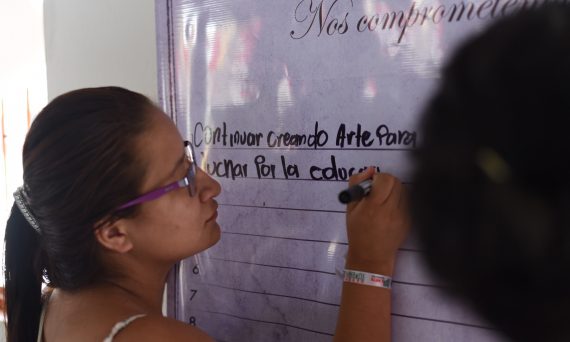 Nos comprometemos
Continuar creando Arte Para
Luchar Por la
6
7
8